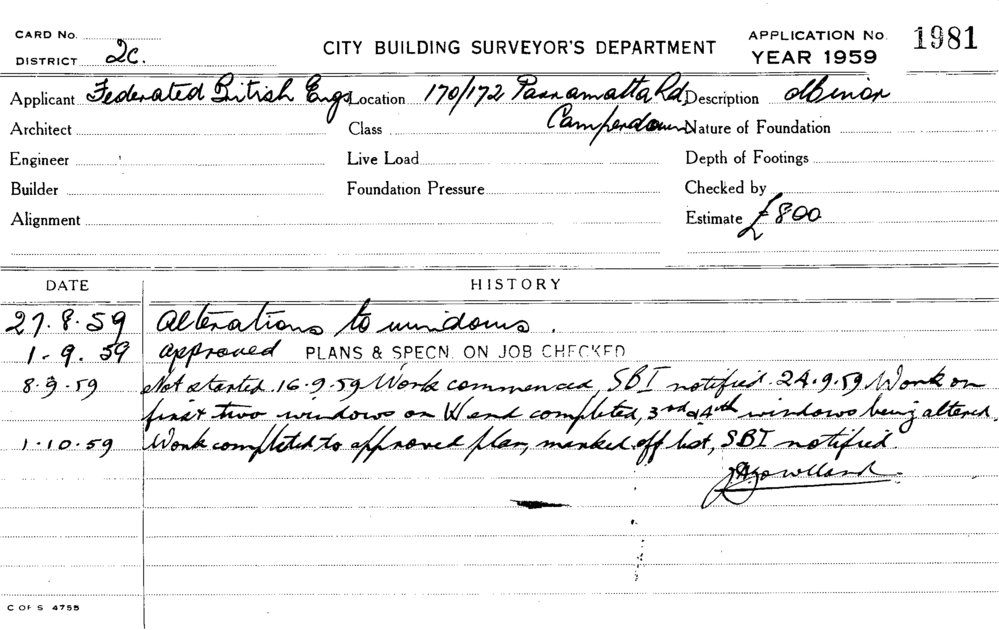 CARD No.
DISTRICT 2C.
CITY BUILDING SURVEYOR'S DEPARTMENT
APPLICATION No. 1981
YEAR 1959
Applicant Federated British Engs Location 170/172 Parramatta Rd, Description Minor
Architect Class Camperdown Nature of Foundation
Engineer Live Load Depth of Footings
Builder Foundation Pressure Checked by
Alignment Estimate £800
DATE HISTORY
27.8.59 Alterations to windows.
1-9.59 approved PLANS & SPECN. ON JOB CHECKED
8.9.59 Not started. 16.9.59 Work commenced, SBI notified. 24.9.59 Work on
first two windows on W end completed, 3rd & 4th windows being altered.
1.10.59 Work completed to approved plan, marked off list, SBI notified
C OF S 4755